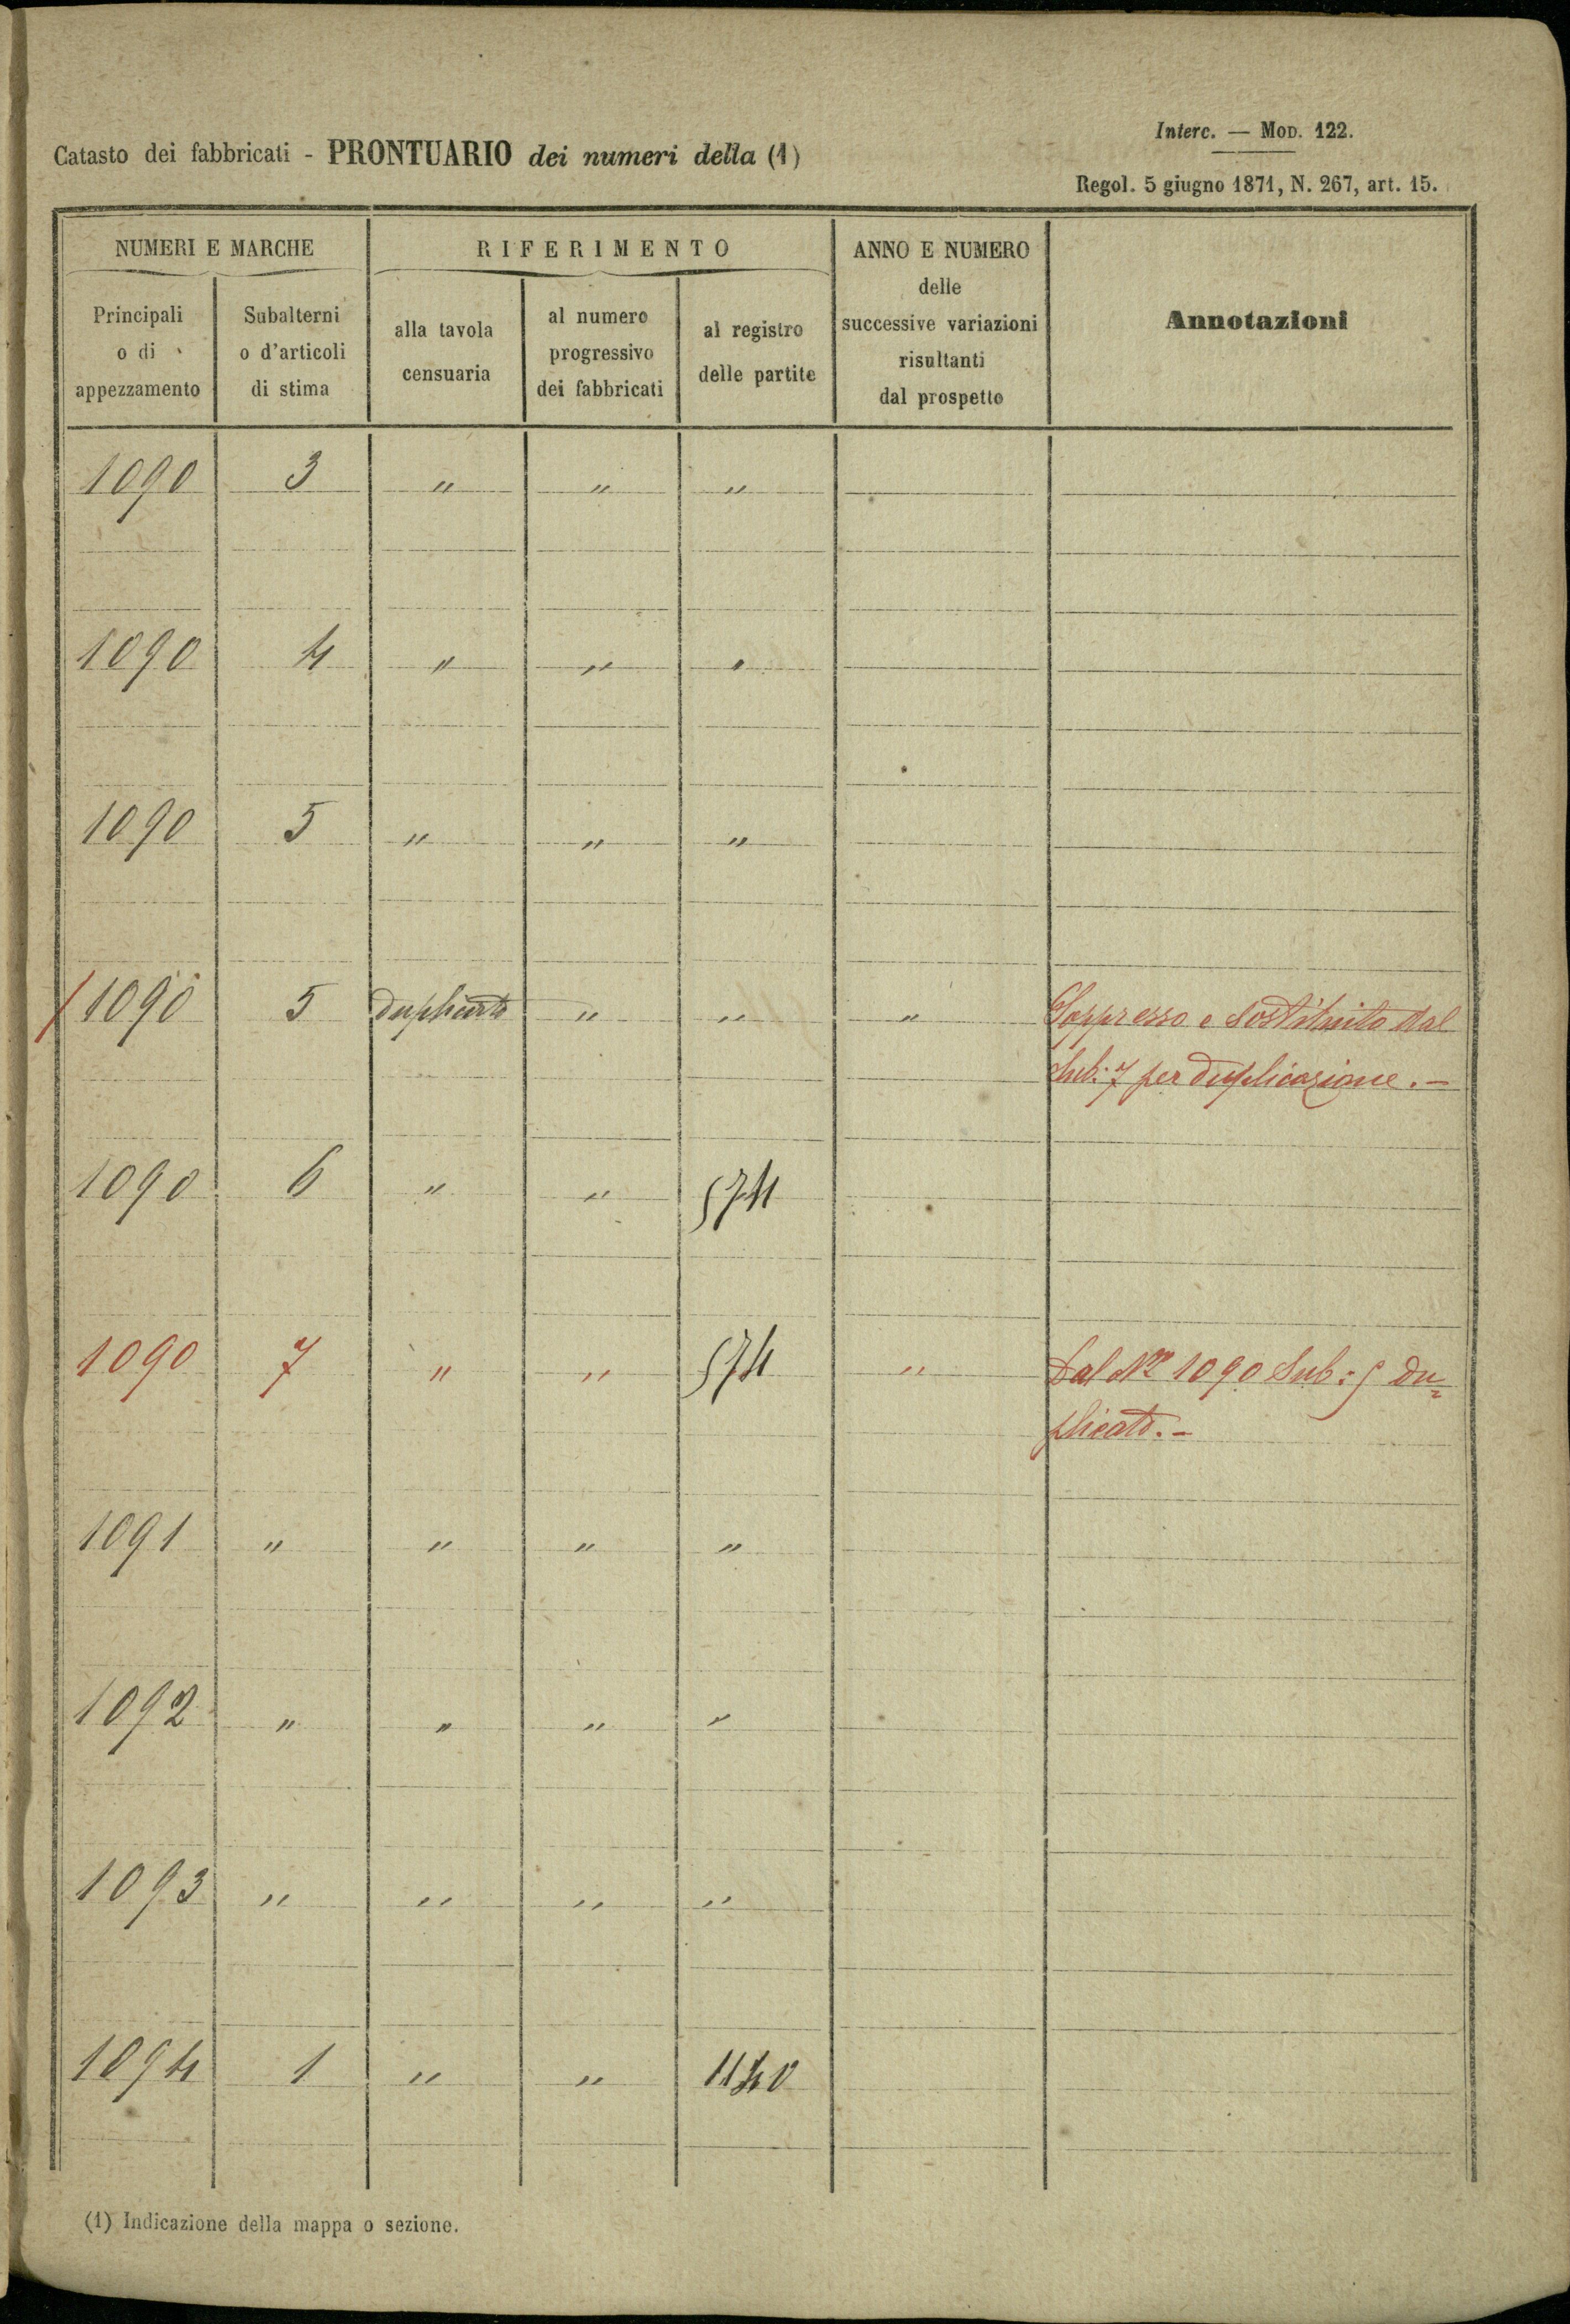 Interc. — Mod. 122.
Catasto dei fabbricati - PRONTUARIO dei numeri della (1)
Regol. 5 giugno 1871, N. 267, art. 15.
NUMERI E MARCHE
RIFERIMENTO
ANNO E NUMERO
delle
successive variazioni
risultanti
dal prospetto
Annotazioni
Principali
o di
appezzamento
Subalterni
o d'articoli
di stima
alla tavola
censuaria
al numero
progressivo
dei fabbricati
al registro
delle partite
1090 3 " " "
1090 4 " " "
1090 5 " " "
1090 5 duplicato " " " Soppresso e sostituito dal
Sub: 7 per duplicazione. —
1090 6 " " 574
1090 7 " " 574 " Dal Nº 1090 Sub: 5 du=
plicato. —
1091 " " " "
1092 " " " "
1093 " " " "
1094 1 " " 1140
(1) Indicazione della mappa o sezione.